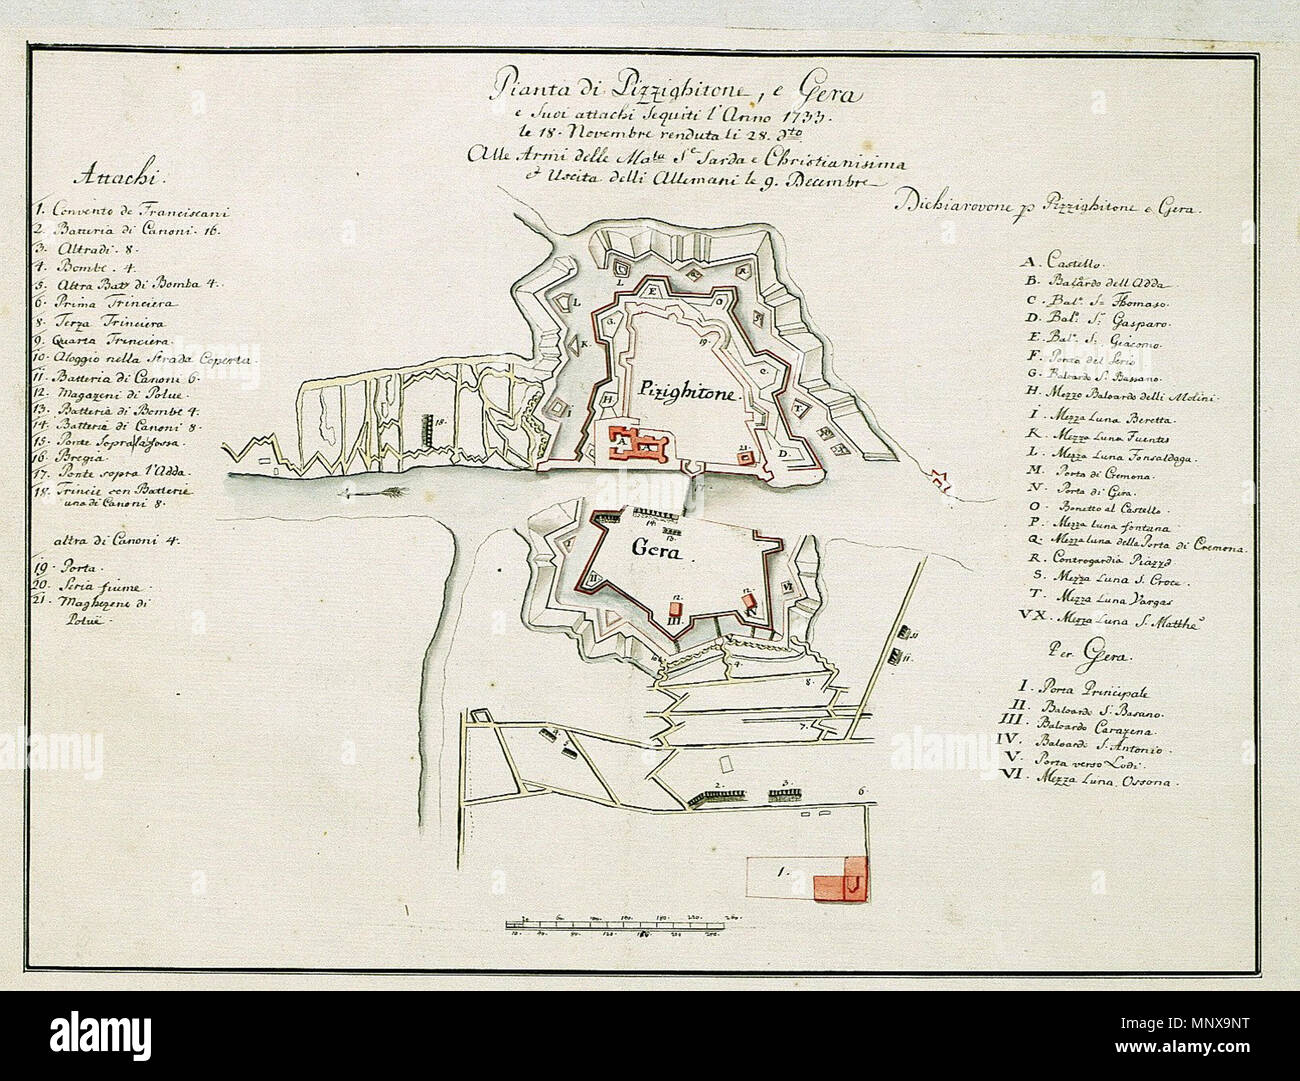 Pianta di Pizzighitone, e Gera
e suoi attachi sequiti l'Anno 1733.
le 18. Novembre renduta li 28. dto
Alle Armi delle Ma.tu S.e Sarda e Christianisima
& Uscita delli Allemani le 9. Decembre
Attachi.
1. Convento de Franciscani
2. Batteria di Canoni. 16.
3. Altradi. 8.
4. Bombe. 4.
5. Altra Bat. di Bomba 4.
6. Prima Trinciera
8. Terza Trinciera
9. Quarta Trinciera.
10. Aloggio nella Strada Coperta.
11. Batteria di Canoni 6.
12. Magazeni di Polue.
13. Batteria di Bombe 4.
14. Batteria di Canoni 8.
15. Ponte Sopra la fossa.
16. Bregia
17. Ponte sopra l'Adda.
18. Trincie con Batterie
una di Canoni 8.
altra di Canoni 4.
19. Porta.
20. Seria fiume.
21. Maghezene di
Polue.
Dichiarovone p Pizzighitone e Gera.
A. Castello.
B. Baloardo dell'Adda
C. Bal.o S.n Thomaso.
D. Bal.o S.n Gasparo.
E. Bal.o S.n Giacomo.
F. Ponta del Serio
G. Baloardo S. Bassano.
H. Mezzo Baloardo delli Molini.
I. Mezza Luna Beretta.
K. Mezza Luna Fuentes
L. Mezza Luna Fonsaldaga
M. Porta di Cremona.
N. Porta di Gera.
O. Bonetto al Castello.
P. Mezza luna fontana
Q. Mezza luna della Porta di Cremona.
R. Controgardia Piazzo
S. Mezza Luna S. Croce.
T. Mezza Luna Vargas
VX. Mezza Luna S. Matthe.o
Per Gera.
I. Porta Principale
II. Baloardo S. Basano.
III. Baloardo Carazena.
IV. Baloardi S. Antonio.
V. Porta verso Lodi.
VI. Mezza Luna Ossona.
Pizighitone.
Gera
alamy
Image ID: MNX9NT
www.alamy.com